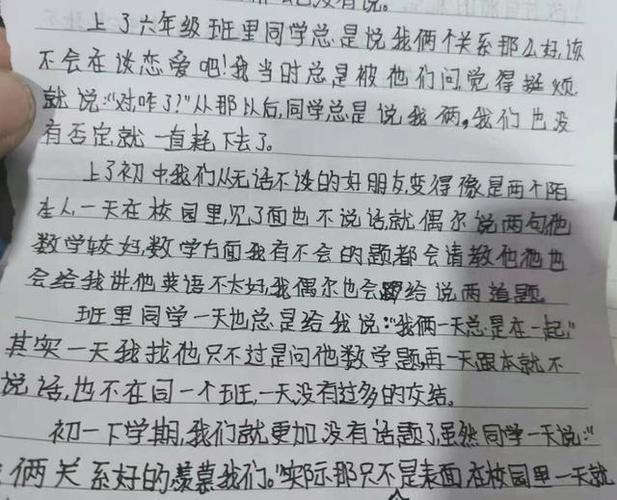 没有说。
上了六年级班里同学总是说我俩个关系那么好,该
不会在谈恋爱吧!我当时总是被他们问,觉得挺烦
就说:“对咋了?”从那以后,同学总是说我俩,我们也没
有否定就一直耗下去了。
上了初中,我们从无话不谈的好朋友,变得像是两个陌
生人,一天在校园里,见了面也不说话,就偶尔说两句他
数学较好,数学方面我有不会的题都会请教他,他也
会给我讲他英语不太好,我偶尔也会给说两道题
班里同学一天也总是给我说:“我俩一天总是在一起,”
其实一天我找他只不过是问他数学题,再一天跟本就不
说话,也不在同一个班,一天没有过多的交结。
初一下学期,我们就更加没有话题了虽然同学一天说:“
俩关系好的羡慕我们。”实际那只不是表面在校园里一天就